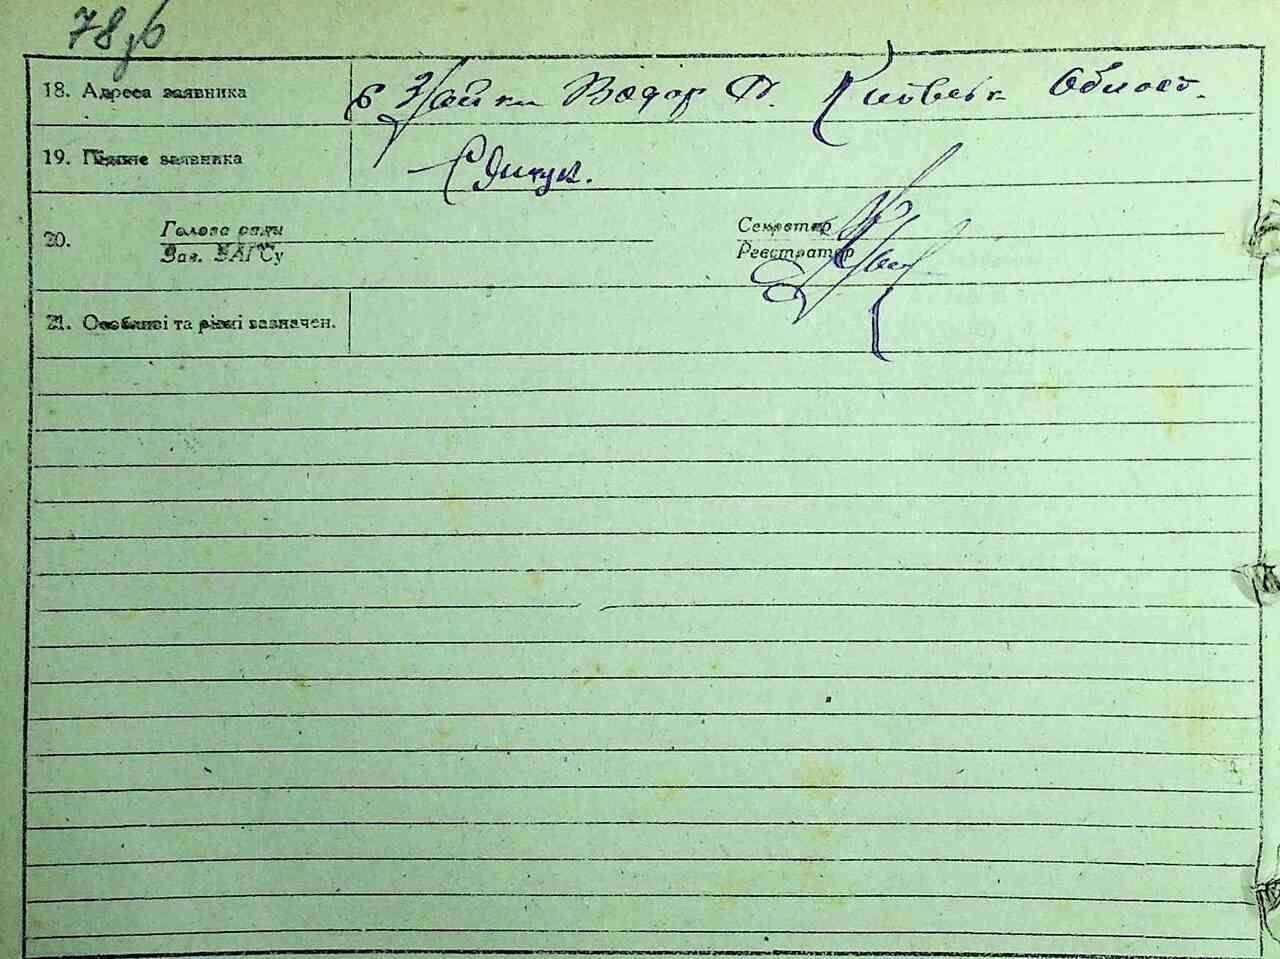 78зб
18. Адреса заявника с Зайки Вѳдор П. Київськ Област.
19. Підпис заявника
20. Голова ради Секретар
Зав. ЗАГСу Реєстратор
21. Особливі та різні зазначен.